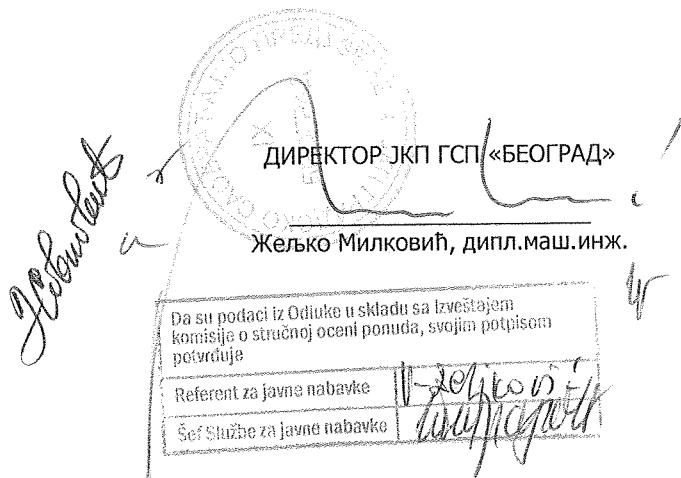 ДИРЕКТОР ЈКП ГСП «БЕОГРАД»
Жељко Милковић, дипл.маш.инж.
Da su podaci iz Odluke u skladu sa Izveštajem
komisije o stručnoj oceni ponuda, svojim potpisom
potvrđuje
Referent za javne nabavke
Šef Službe za javne nabavke